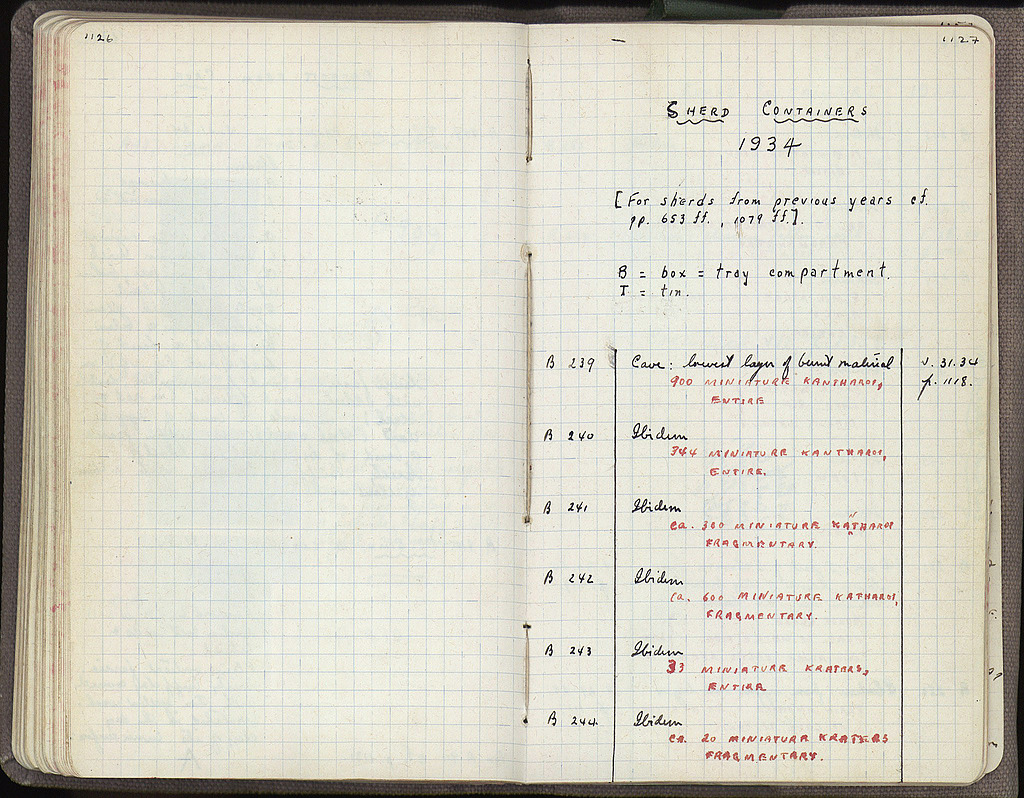 1126
1127
SHERD CONTAINERS
1934
[For sherds from previous years cf.
pp. 653 ff., 1079 ff.].
B = box = tray compartment.
T = tin.
B 239 Cave: lowest layer of burnt material v. 31.34
900 MINIATURE KANTHAROI, p. 1118.
ENTIRE
B 240 Ibidem
344 MINIATURE KANTHAROI,
ENTIRE.
B 241 Ibidem
ca. 300 MINIATURE KANTHAROI
FRAGMENTARY.
B 242 Ibidem
ca. 600 MINIATURE KATHAROI,
FRAGMENTARY.
B 243 Ibidem
33 MINIATURE KRATERS,
ENTIRE
B 244. Ibidem
ca. 20 MINIATURE KRATERS
FRAGMENTARY.